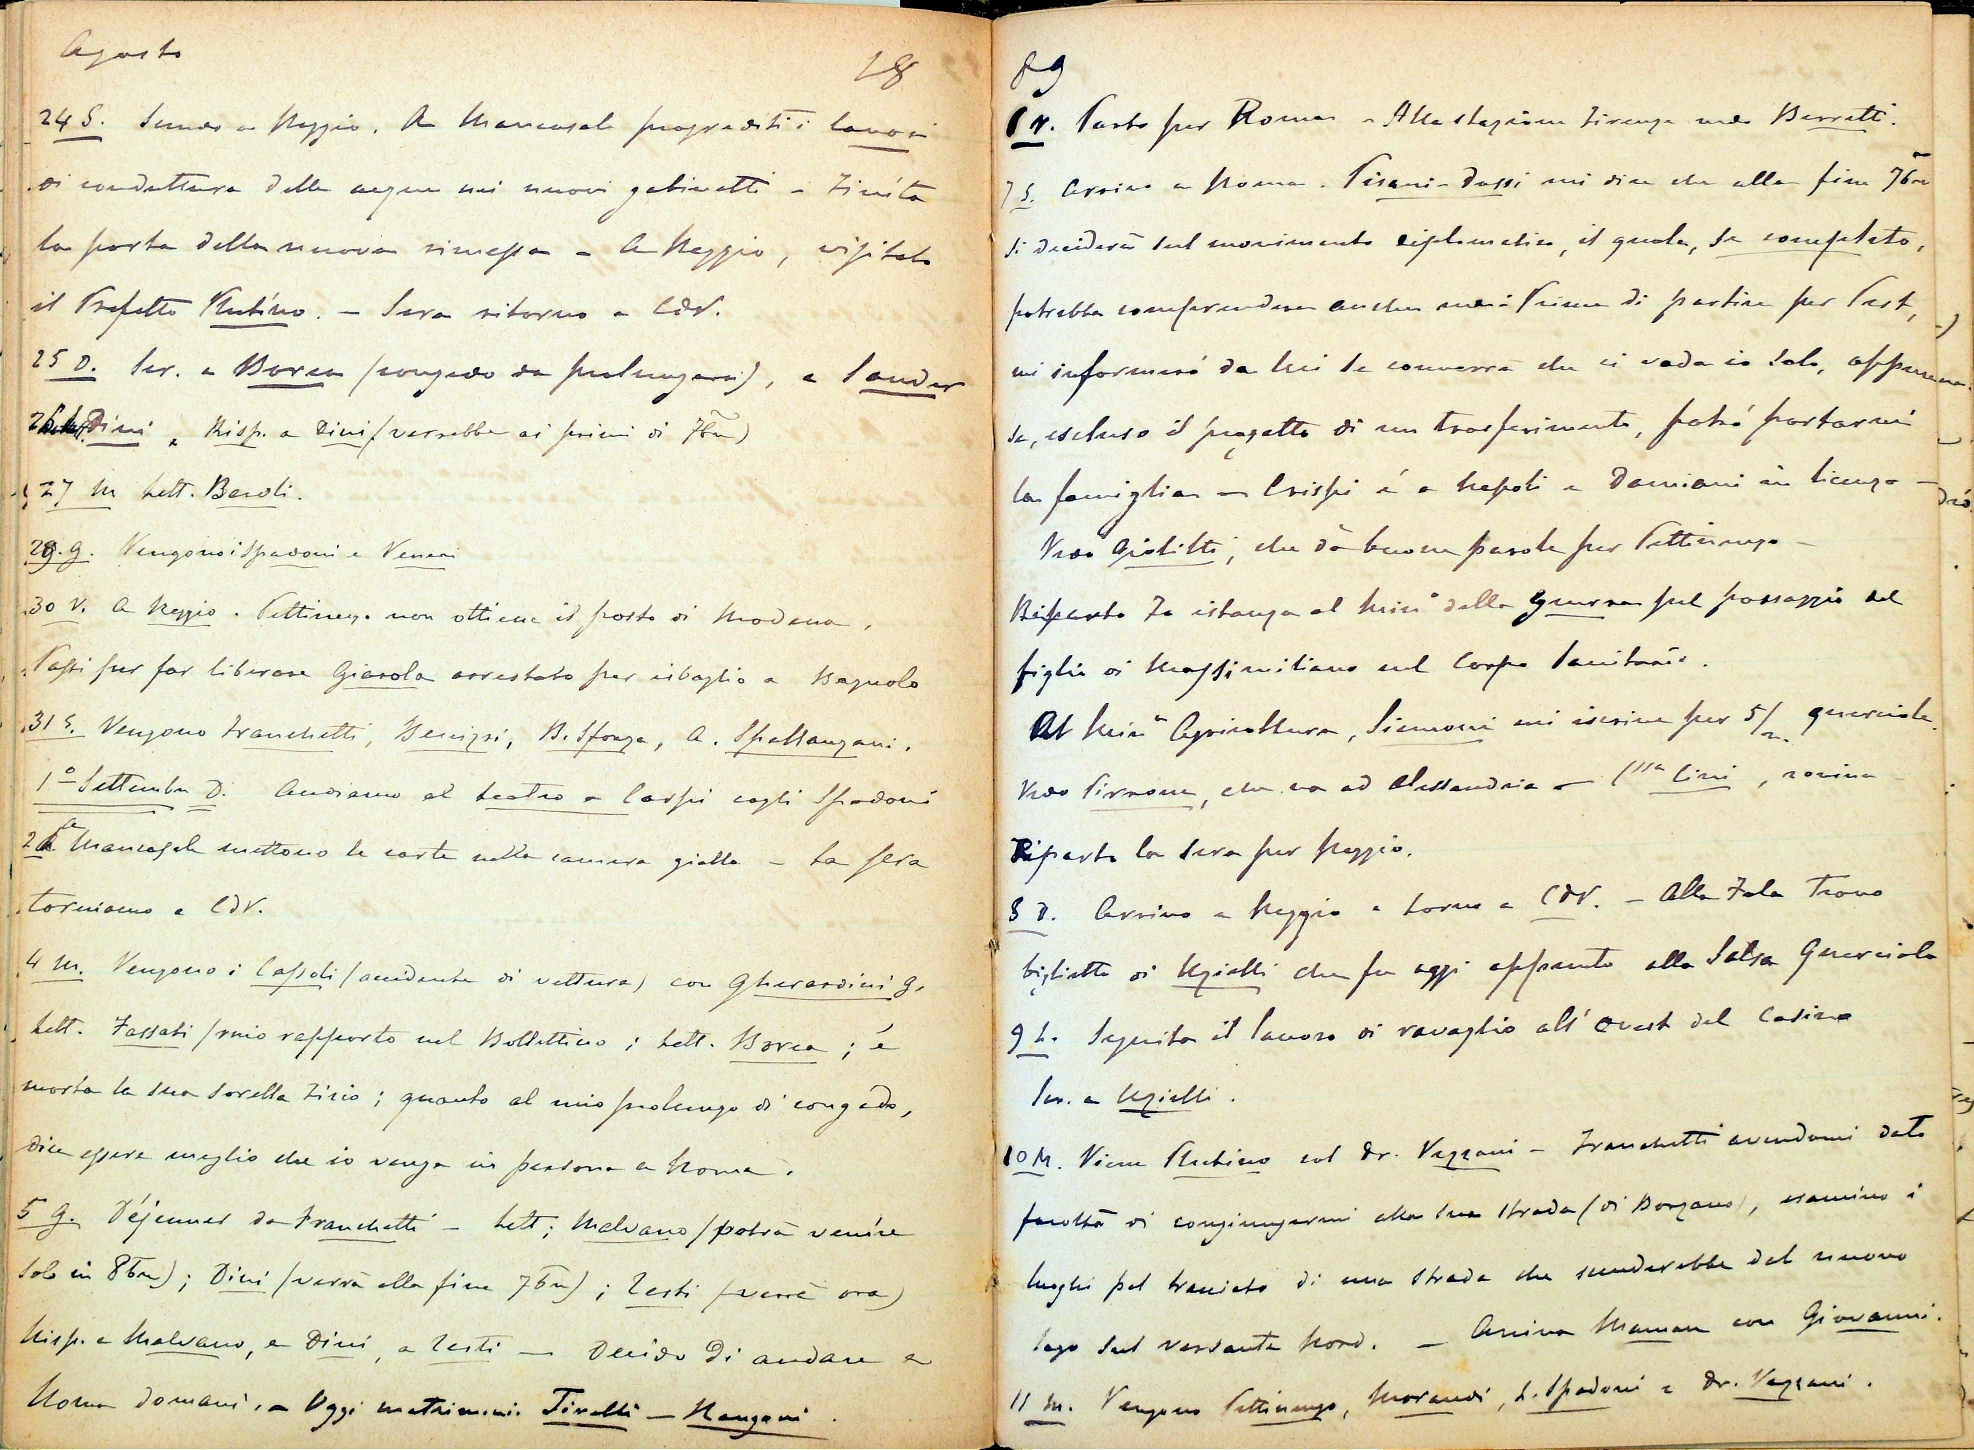 Agosto
18
24 S. Scendo a Reggio. A Mancasale progrediti i lavori
di conduttura delle acque nei nuovi gabinetti - Finita
la porta della nuova rimessa - A Reggio, visitato
il Prefetto Rubino. - Sera ritorno a CdV.
25 D. Scr. a Borea (congedo da prolungarsi), a Sander
Dini, Risp. a Dini (verrebbe ai primi di 7bre)
27 M Lett. Baroli.
29. G. Vengono i Spadoni e Veneri
30 V. A Reggio. Pettinengo non ottiene il posto di Modena.
Passi per far liberare Giarola arrestato per isbaglio a Bagnolo
31 S. Vengono Franchetti, B. Sforza, A. Spallanzani.
1° Settembre D. Andiamo al teatro a Carpi cogli Spadoni
2 A Mancasale mettono le carte nella camera gialla - La sera
torniamo a CdV.
4 M. Vengono i Cassoli (accidente di vettura) con Gherardini G.
Lett. Fassati (mio rapporto nel Bollettino; Lett. Borea; é
morta la sua sorella; quanto al mio prolungo di congedo,
dice essere meglio che io venga in persona a Roma.
5 G. Déjeuner da Franchetti - Lett; Malvano (potrà venire
solo in 8bre); Dini (verrà alla fine 7bre); Zesti (verrà ora)
Risp. a Malvano, a Dini, a Zesti - Decido di andare a
Roma domani. - Oggi matrimonio Tirelli - Mangani.
89
6 V. Parto per Roma - Alla stazione Firenze vedo Berretti.
7 S. Arrivo a Roma. Pisani-Dossi mi dice che alla fine 7bre
si deciderà sul movimento diplomatico, il quale, se completo,
potrebbe comprendere anche me. Prima di partire per Pest,
mi informerò da lui se converrà che ci vada io solo, oppure
se, escluso il progetto di un trasferimento, potrò portarmi
la famiglia - Crispi é a Napoli e Damiani in licenza -
Vedo Giolitti, che dà buone parole per Pettinengo -
istanza al Min° della Guerra pel passaggio del
figlio di Massimiliano nel Corpo Sanitario.
Al Min° Agricoltura, Siemoni mi iscrive per 5/m querciole.
Vedo Pirrone, che va ad Alessandria - C.ssa Cini, rovina -
Riparto la sera per Reggio.
8 D. Arrivo a Reggio e torno a CdV. - Alla Fola trovo
biglietto di Uzielli che fu oggi appunto alla Salsa Querciola
9 L. Seguita il lavoro di ravaglio all' ovest del Casino
Scr. a Uzielli.
10 M. Viene Rubino col Dr. Vezzani - Franchetti avendomi dato
facoltà di congiungermi alla sua strada (di Borzano), esamino i
luoghi pel tracciato di una strada che scenderebbe dal nuovo
lago sul versante Nord. - Arriva Maman con Giovanni.
11 M. Vengono Pettinengo, Morandi, L. Spadoni e Dr. Vezzani.